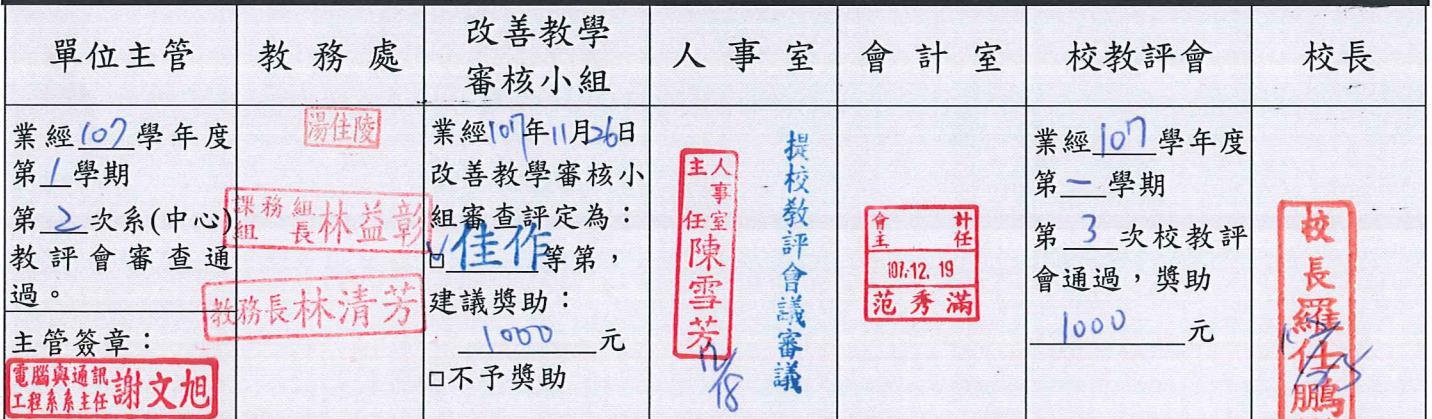 單位主管
教務處
改善教學
審核小組
人事室
會計室
校教評會
校長
業經107學年度
第1學期
第2次系(中心)
教評會審查通
過。
主管簽章：
電腦與通訊
工程系系主任
謝文旭
湯佳陵
課務組
組長
林益彰
教務長林清芳
業經107年11月26日
改善教學審核小
組審查評定為：
□佳作等第，
建議獎助：
1000元
□不予獎助
人事室
主任
陳雪芳
12/18
提校教評會議審議
會計
主任
107.12.19
范秀滿
業經107學年度
第一學期
第3次校教評
會通過，獎助
1000元
校長羅仕鵬